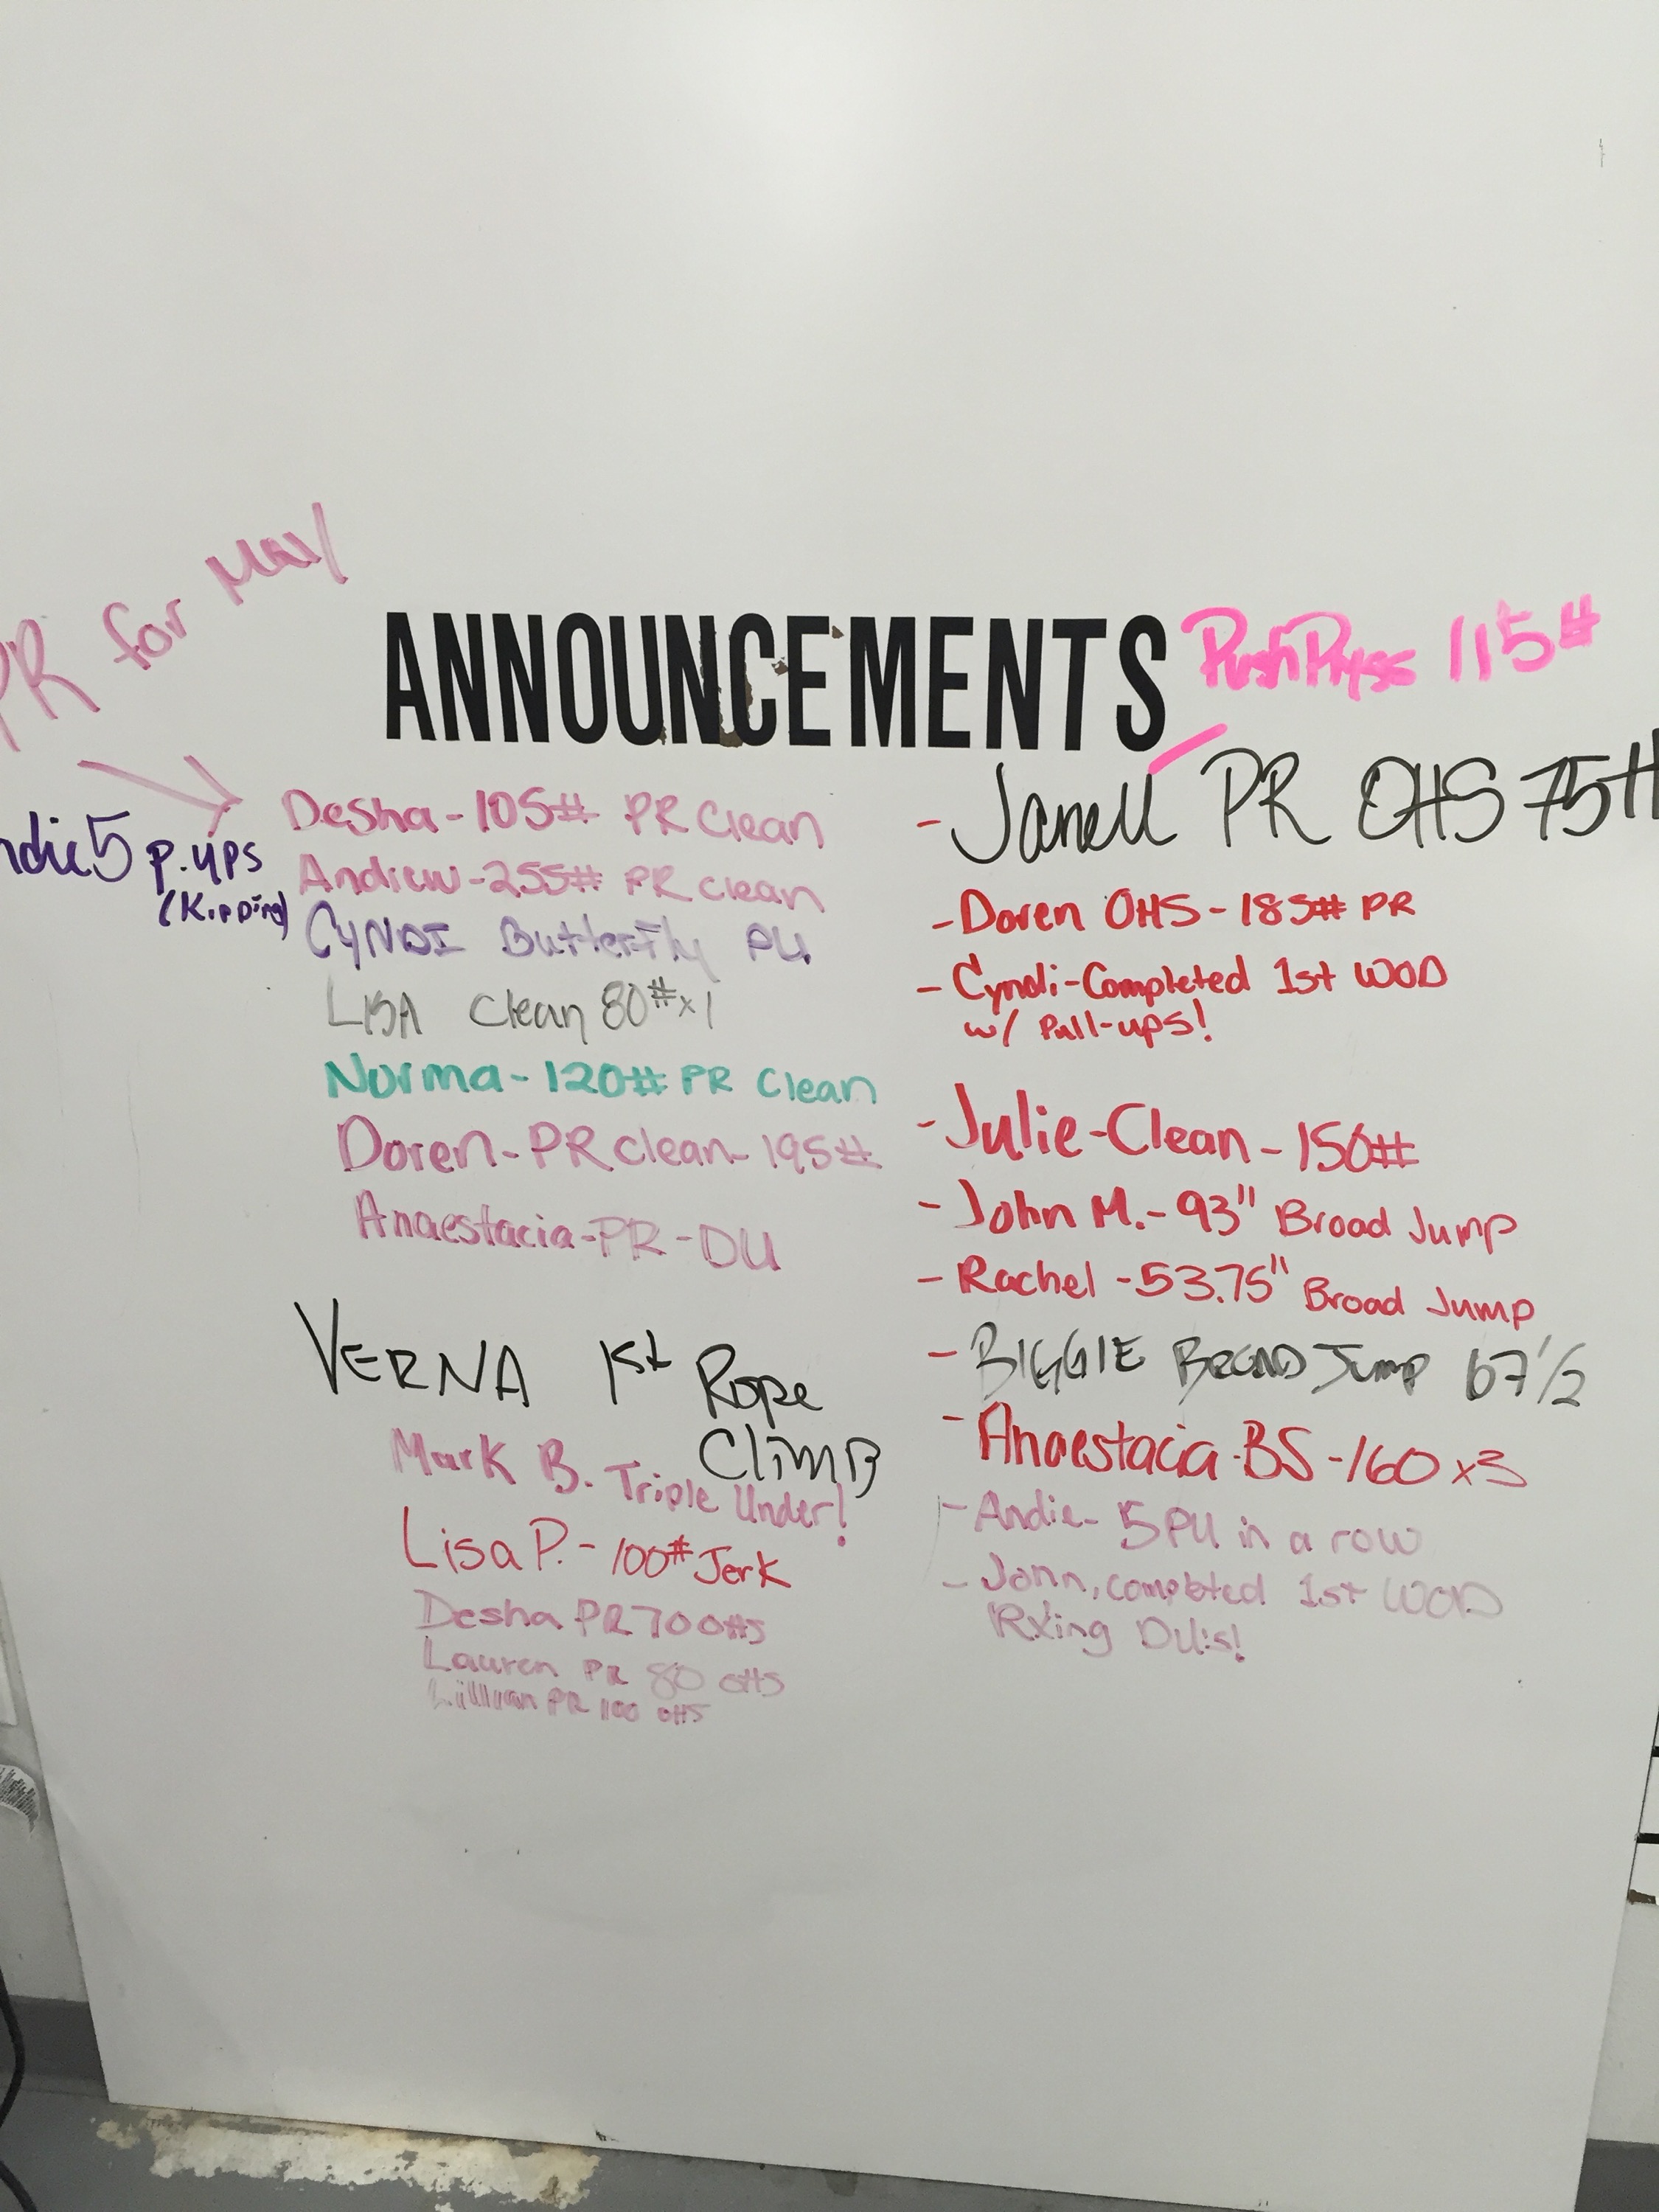 PR for May
ANNOUNCEMENTS
Push Press 115#
5 p.ups
(Kipping)
Desha-105# PR Clean
Andrew-255# PR clean
CYNDI Butterfly PU
LISA Clean 80# x 1
Norma-120# PR Clean
Doren-PR clean-195#
Anaestacia-PR-DU
VERNA 1st Rope
Climb
Mark B. Triple Under!
Lisa P.-100# Jerk
Desha PR 70 OHS
Lauren PR 80 OHS
Lillian PR 100 OHS
-Janell PR OHS 75#
-Doren OHS-185# PR
-Cyndi-Completed 1st WOD
w/ Pull-ups!
-Julie-Clean-150#
-John M.-93" Broad Jump
-Rachel-53.75" Broad Jump
-BIGGIE BROAD Jump 67 1/2
-Anaestacia-BS-160 x3
-Andie-5PU in a row
-John, completed 1st WOD
RXing DU's!